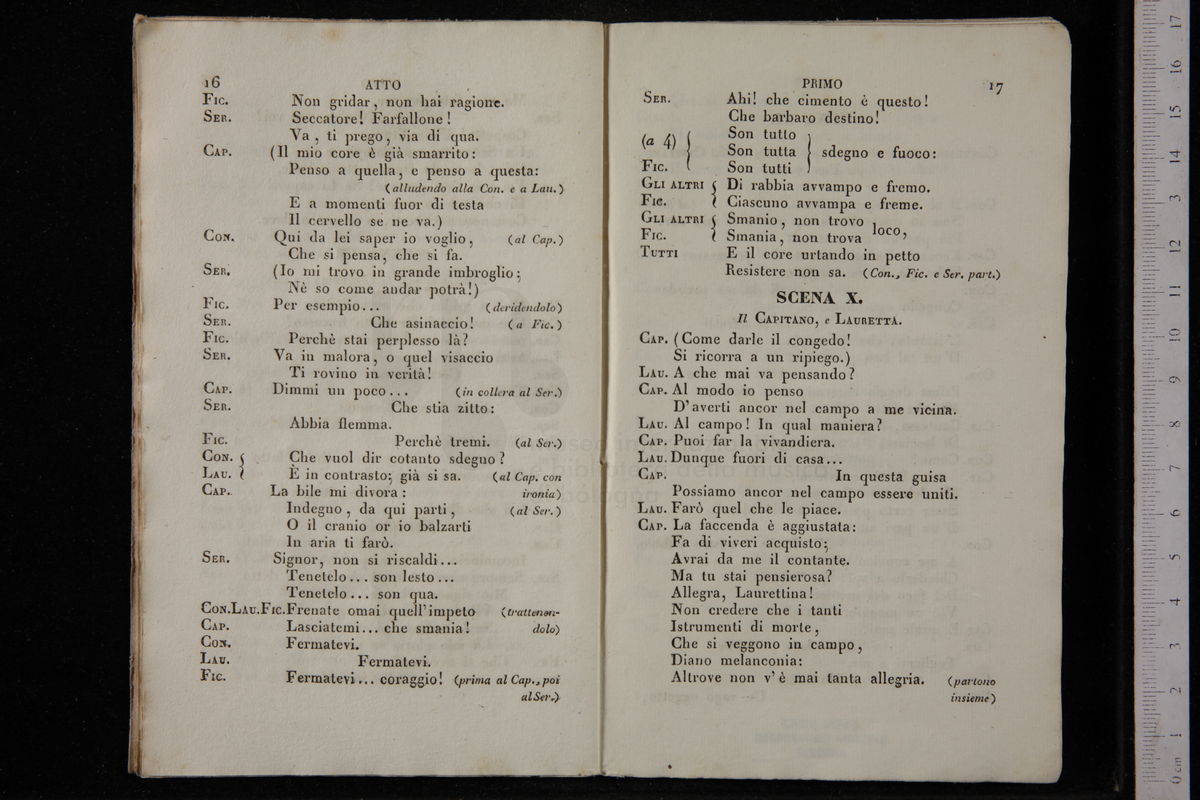 16 ATTO
Fic. Non gridar, non hai ragione.
Ser. Seccatore! Farfallone!
Va, ti prego, via di qua.
Cap. (Il mio core è già smarrito:
Penso a quella, e penso a questa:
(alludendo alla Con. e a Lau.)
E a momenti fuor di testa
Il cervello se ne va.)
Con. Qui da lei saper io voglio, (al Cap.)
Che si pensa, che si fa.
Ser. (Io mi trovo in grande imbroglio;
Nè so come andar potrà!)
Fic. Per esempio... (deridendolo)
Ser. Che asinaccio! (a Fic.)
Fic. Perchè stai perplesso là?
Ser. Va in malora, o quel visaccio
Ti rovino in verità!
Cap. Dimmi un poco... (in collera al Ser.)
Ser. Che stia zitto:
Abbia flemma.
Fic. Perchè tremi. (al Ser.)
Con. { Che vuol dir cotanto sdegno?
Lau. { È in contrasto; già si sa. (al Cap. con
Cap. La bile mi divora: ironia)
Indegno, da qui parti, (al Ser.)
O il cranio or io balzarti
In aria ti farò.
Ser. Signor, non si riscaldi...
Tenetelo... son lesto...
Tenetelo... son qua.
Con.Lau.Fic.Frenate omai quell'impeto (trattenen-
Cap. Lasciatemi... che smania! dolo)
Con. Fermatevi.
Lau. Fermatevi.
Fic. Fermatevi... coraggio! (prima al Cap., poi
al Ser.)
PRIMO 17
Ser. Ahi! che cimento è questo!
Che barbaro destino!
(a 4) { Son tutto }
Son tutta } sdegno e fuoco:
Fic. { Son tutti }
Gli altri { Di rabbia avvampo e fremo.
Fic. { Ciascuno avvampa e freme.
Gli altri { Smanio, non trovo
Fic. { Smania, non trova loco,
Tutti E il core urtando in petto
Resistere non sa. (Con., Fic. e Ser. part.)
SCENA X.
Il Capitano, e Lauretta.
Cap. (Come darle il congedo!
Si ricorra a un ripiego.)
Lau. A che mai va pensando?
Cap. Al modo io penso
D'averti ancor nel campo a me vicina.
Lau. Al campo! In qual maniera?
Cap. Puoi far la vivandiera.
Lau. Dunque fuori di casa...
Cap. In questa guisa
Possiamo ancor nel campo essere uniti.
Lau. Farò quel che le piace.
Cap. La faccenda è aggiustata:
Fa di viveri acquisto;
Avrai da me il contante.
Ma tu stai pensierosa?
Allegra, Laurettina!
Non credere che i tanti
Istrumenti di morte,
Che si veggono in campo,
Diano melanconia:
Altrove non v'è mai tanta allegria. (partono
insieme)